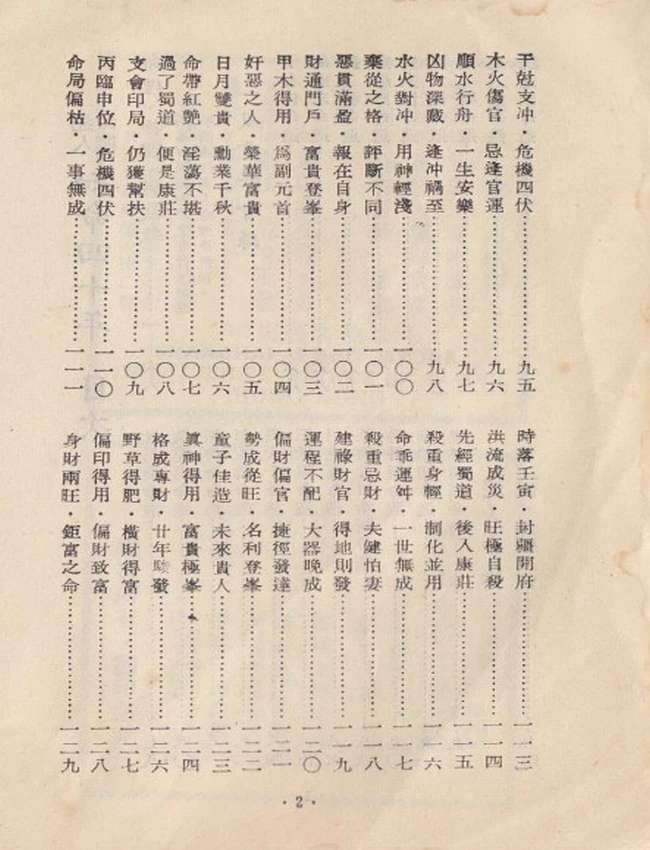 干尅支冲・危機四伏……九五
木火傷官・忌逢官運……九六
順水行舟・一生安樂……九七
凶物深藏・逢冲禍至……九八
水火對冲・用神輕淺……一〇〇
棄從之格・評斷不同……一〇一
惡貫滿盈・報在自身……一〇二
財通門戶・富貴登峯……一〇三
甲木得用・爲副元首……一〇四
奸惡之人・榮華富貴……一〇五
日月雙貴・勳業千秋……一〇六
命帶紅艷・淫蕩不堪……一〇七
過了蜀道・便是康莊……一〇八
支會印局・仍獲幫扶……一〇九
丙臨申位・危機四伏……一一〇
命局偏枯・一事無成……一一一
時落壬寅・封疆開府……一一三
洪流成災・旺極自殺……一一四
先經蜀道・後入康莊……一一五
殺重身輕・制化並用……一一六
命乖運舛・一世無成……一一七
殺重忌財・夫健怕妻……一一八
建祿財官・得地則發……一一九
運程不配・大器晚成……一二〇
偏財偏官・捷徑發達……一二一
勢成從旺・名利登峯……一二二
童子佳造・未來貴人……一二三
眞神得用・富貴極峯……一二四
格成專財・廿年駿發……一二六
野草得肥・橫財得富……一二七
偏印得用・偏財致富……一二八
身財兩旺・鉅富之命……一二九
・2・